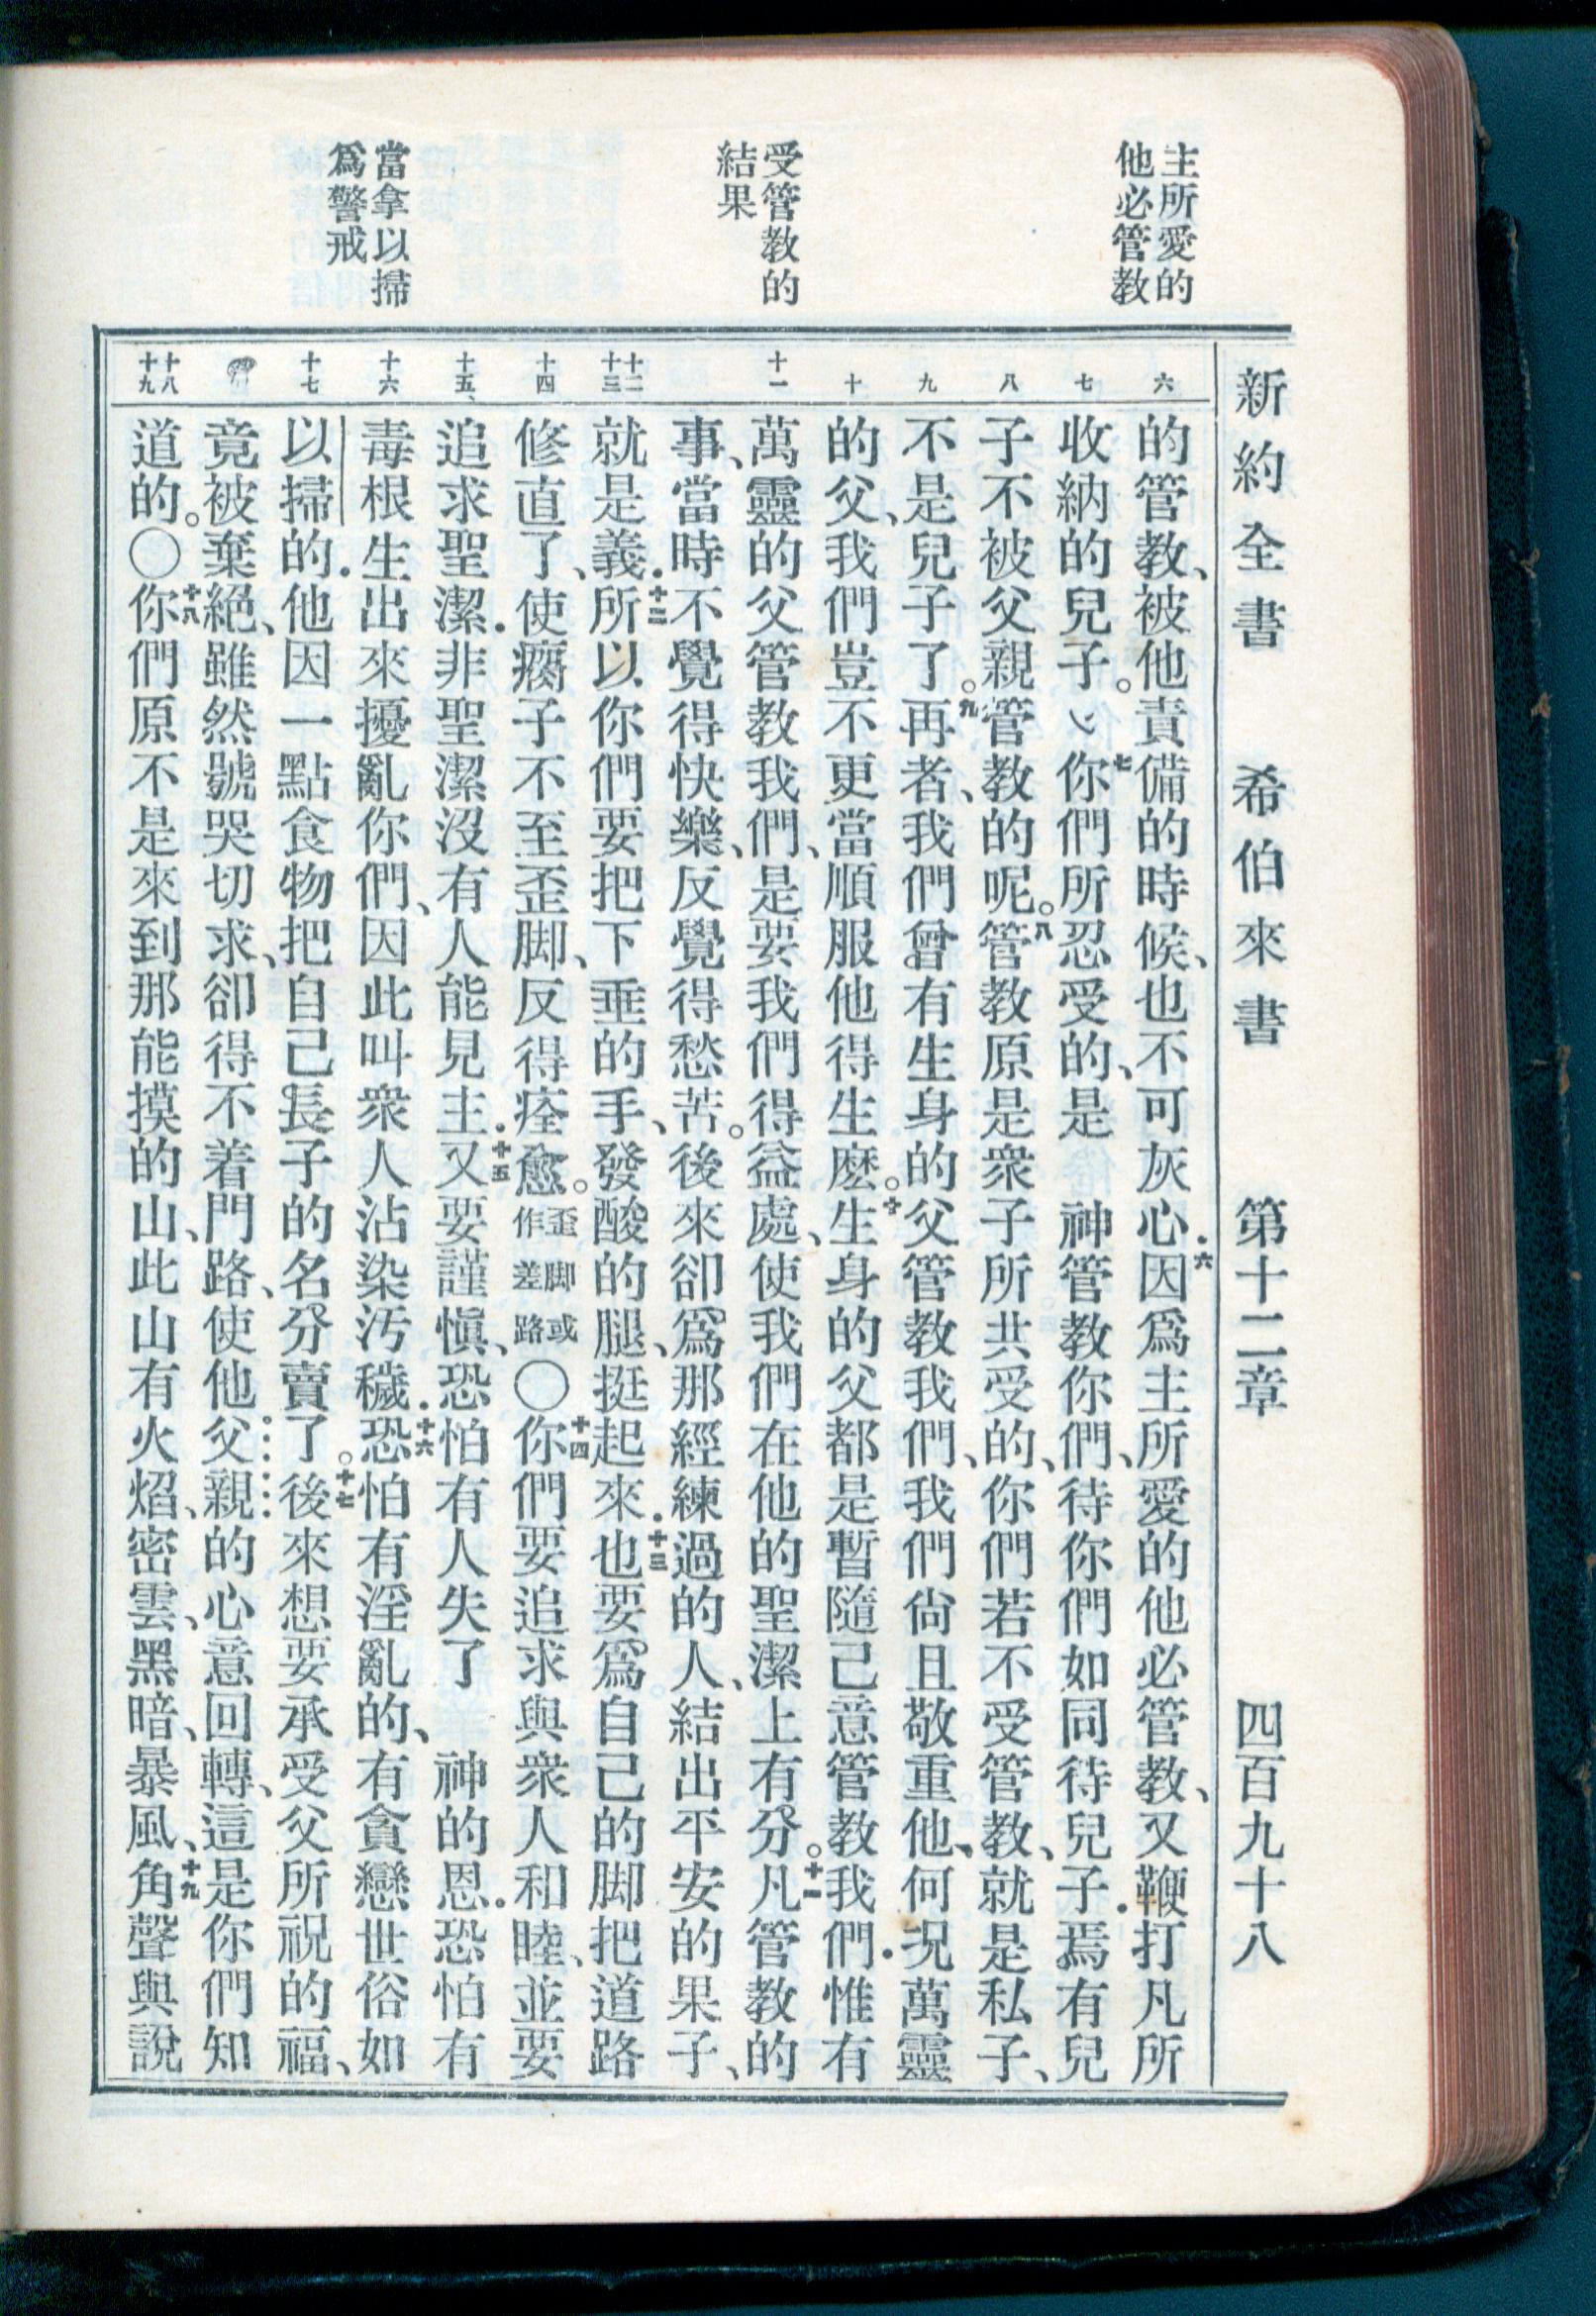 主所愛的
他必管教
受管教的
結果
當拿以掃
爲警戒
新約全書 希伯來書 第十二章 四百九十八
六
七
八
九
十
十一
十二
十三
十四
十五、
十六
十七
十八
十九
的管教、被他責備的時候、也不可灰心．六因爲主所愛的他必管教、又鞭打凡所
收納的兒子。七你們所忍受的、是 神管教你們、待你們如同待兒子．焉有兒
子不被父親管教的呢。八管教原是衆子所共受的、你們若不受管教、就是私子、
不是兒子了。九再者、我們曾有生身的父管教我們、我們尙且敬重他、何況萬靈
的父、我們豈不更當順服他得生麽。十生身的父都是暫隨己意管教我們．惟有
萬靈的父管教我們、是要我們得益處、使我們在他的聖潔上有分。十一凡管教的
事、當時不覺得快樂、反覺得愁苦。後來卻爲那經練過的人、結出平安的果子、
就是義．十二所以你們要把下垂的手、發酸的腿、挺起來．十三也要爲自己的脚把道路
修直了、使瘸子不至歪脚、反得痊愈。歪脚或作差路〇十四你們要追求與衆人和睦、並要
追求聖潔．非聖潔沒有人能見主．十五又要謹愼、恐怕有人失了 神的恩．恐怕有
毒根生出來擾亂你們、因此叫衆人沾染汚穢．十六恐怕有淫亂的、有貪戀世俗如
以掃的．他因一點食物把自己長子的名分賣了。十七後來想要承受父所祝的福、
竟被棄絕、雖然號哭切求、卻得不着門路、使他父親的心意回轉、這是你們知
道的。〇十八你們原不是來到那能摸的山、此山有火焰、密雲、黑暗、暴風、十九角聲與說